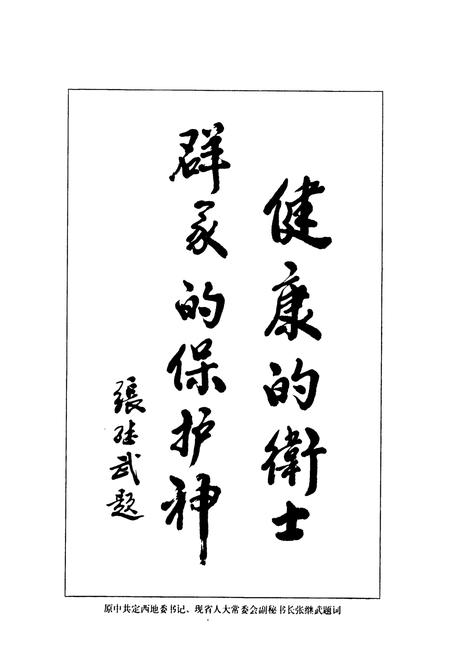 健康的衛士
群众的保护神
張继武題
原中共定西地委书记、现省人大常委会副秘书长张继武题词